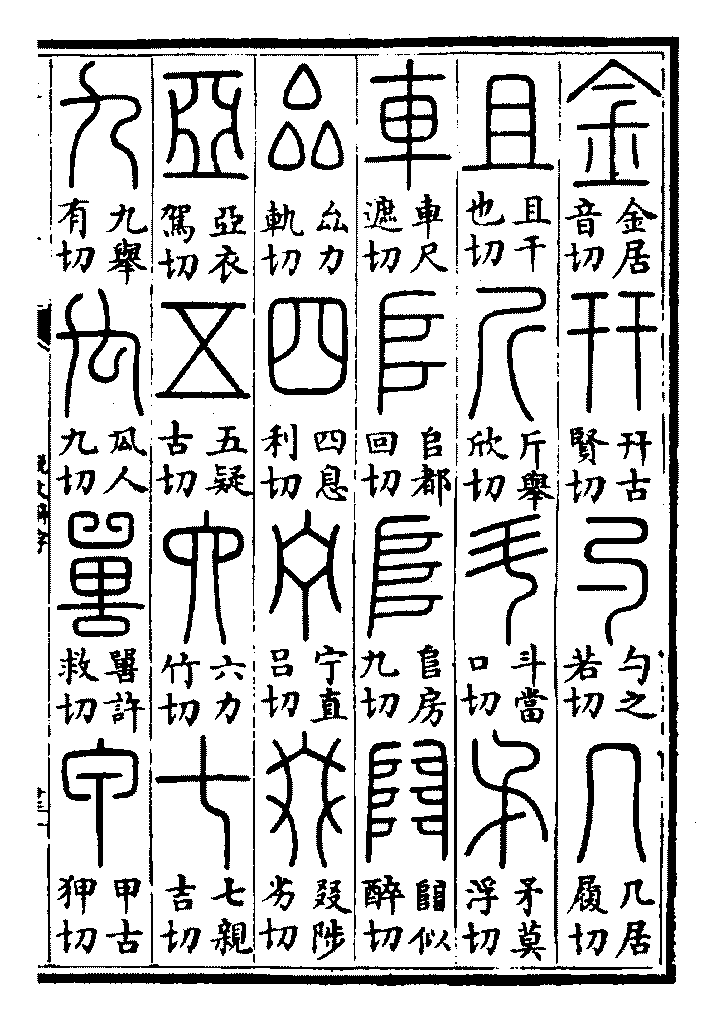 金 金居音切
幵 幵古賢切
勺 勺之若切
几 几居履切
且 且千也切
斤 斤舉欣切
斗 斗當口切
矛 矛莫浮切
車 車尺遮切
𠂤 𠂤都回切
𨸏 𨸏房九切
𨺅 𨺅似醉切
厽 厽力軌切
四 四息利切
宁 宁直呂切
叕 叕陟劣切
亞 亞衣駕切
五 五疑古切
六 六力竹切
七 七親吉切
九 九舉有切
禸 禸人九切
嘼 嘼許救切
甲 甲古狎切
説文解字